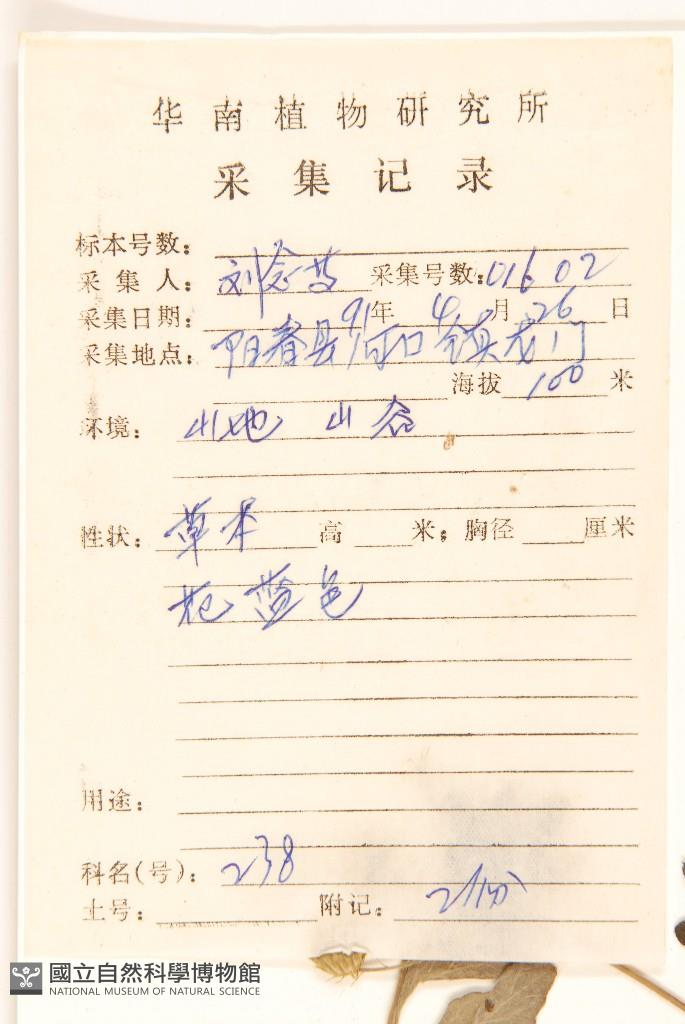 华南植物研究所
采集记录
标本号数：
采集人：刘念 采集号数：01602
采集日期：91年4月26日
采集地点：阳春县河口镇龙门
海拔 100 米
环境：山地 山谷
性状：草本 高 米；胸径 厘米
花蓝色
用途：
科名(号)：238
土号： 附记：2份
國立自然科學博物館
NATIONAL MUSEUM OF NATURAL SCIENCE